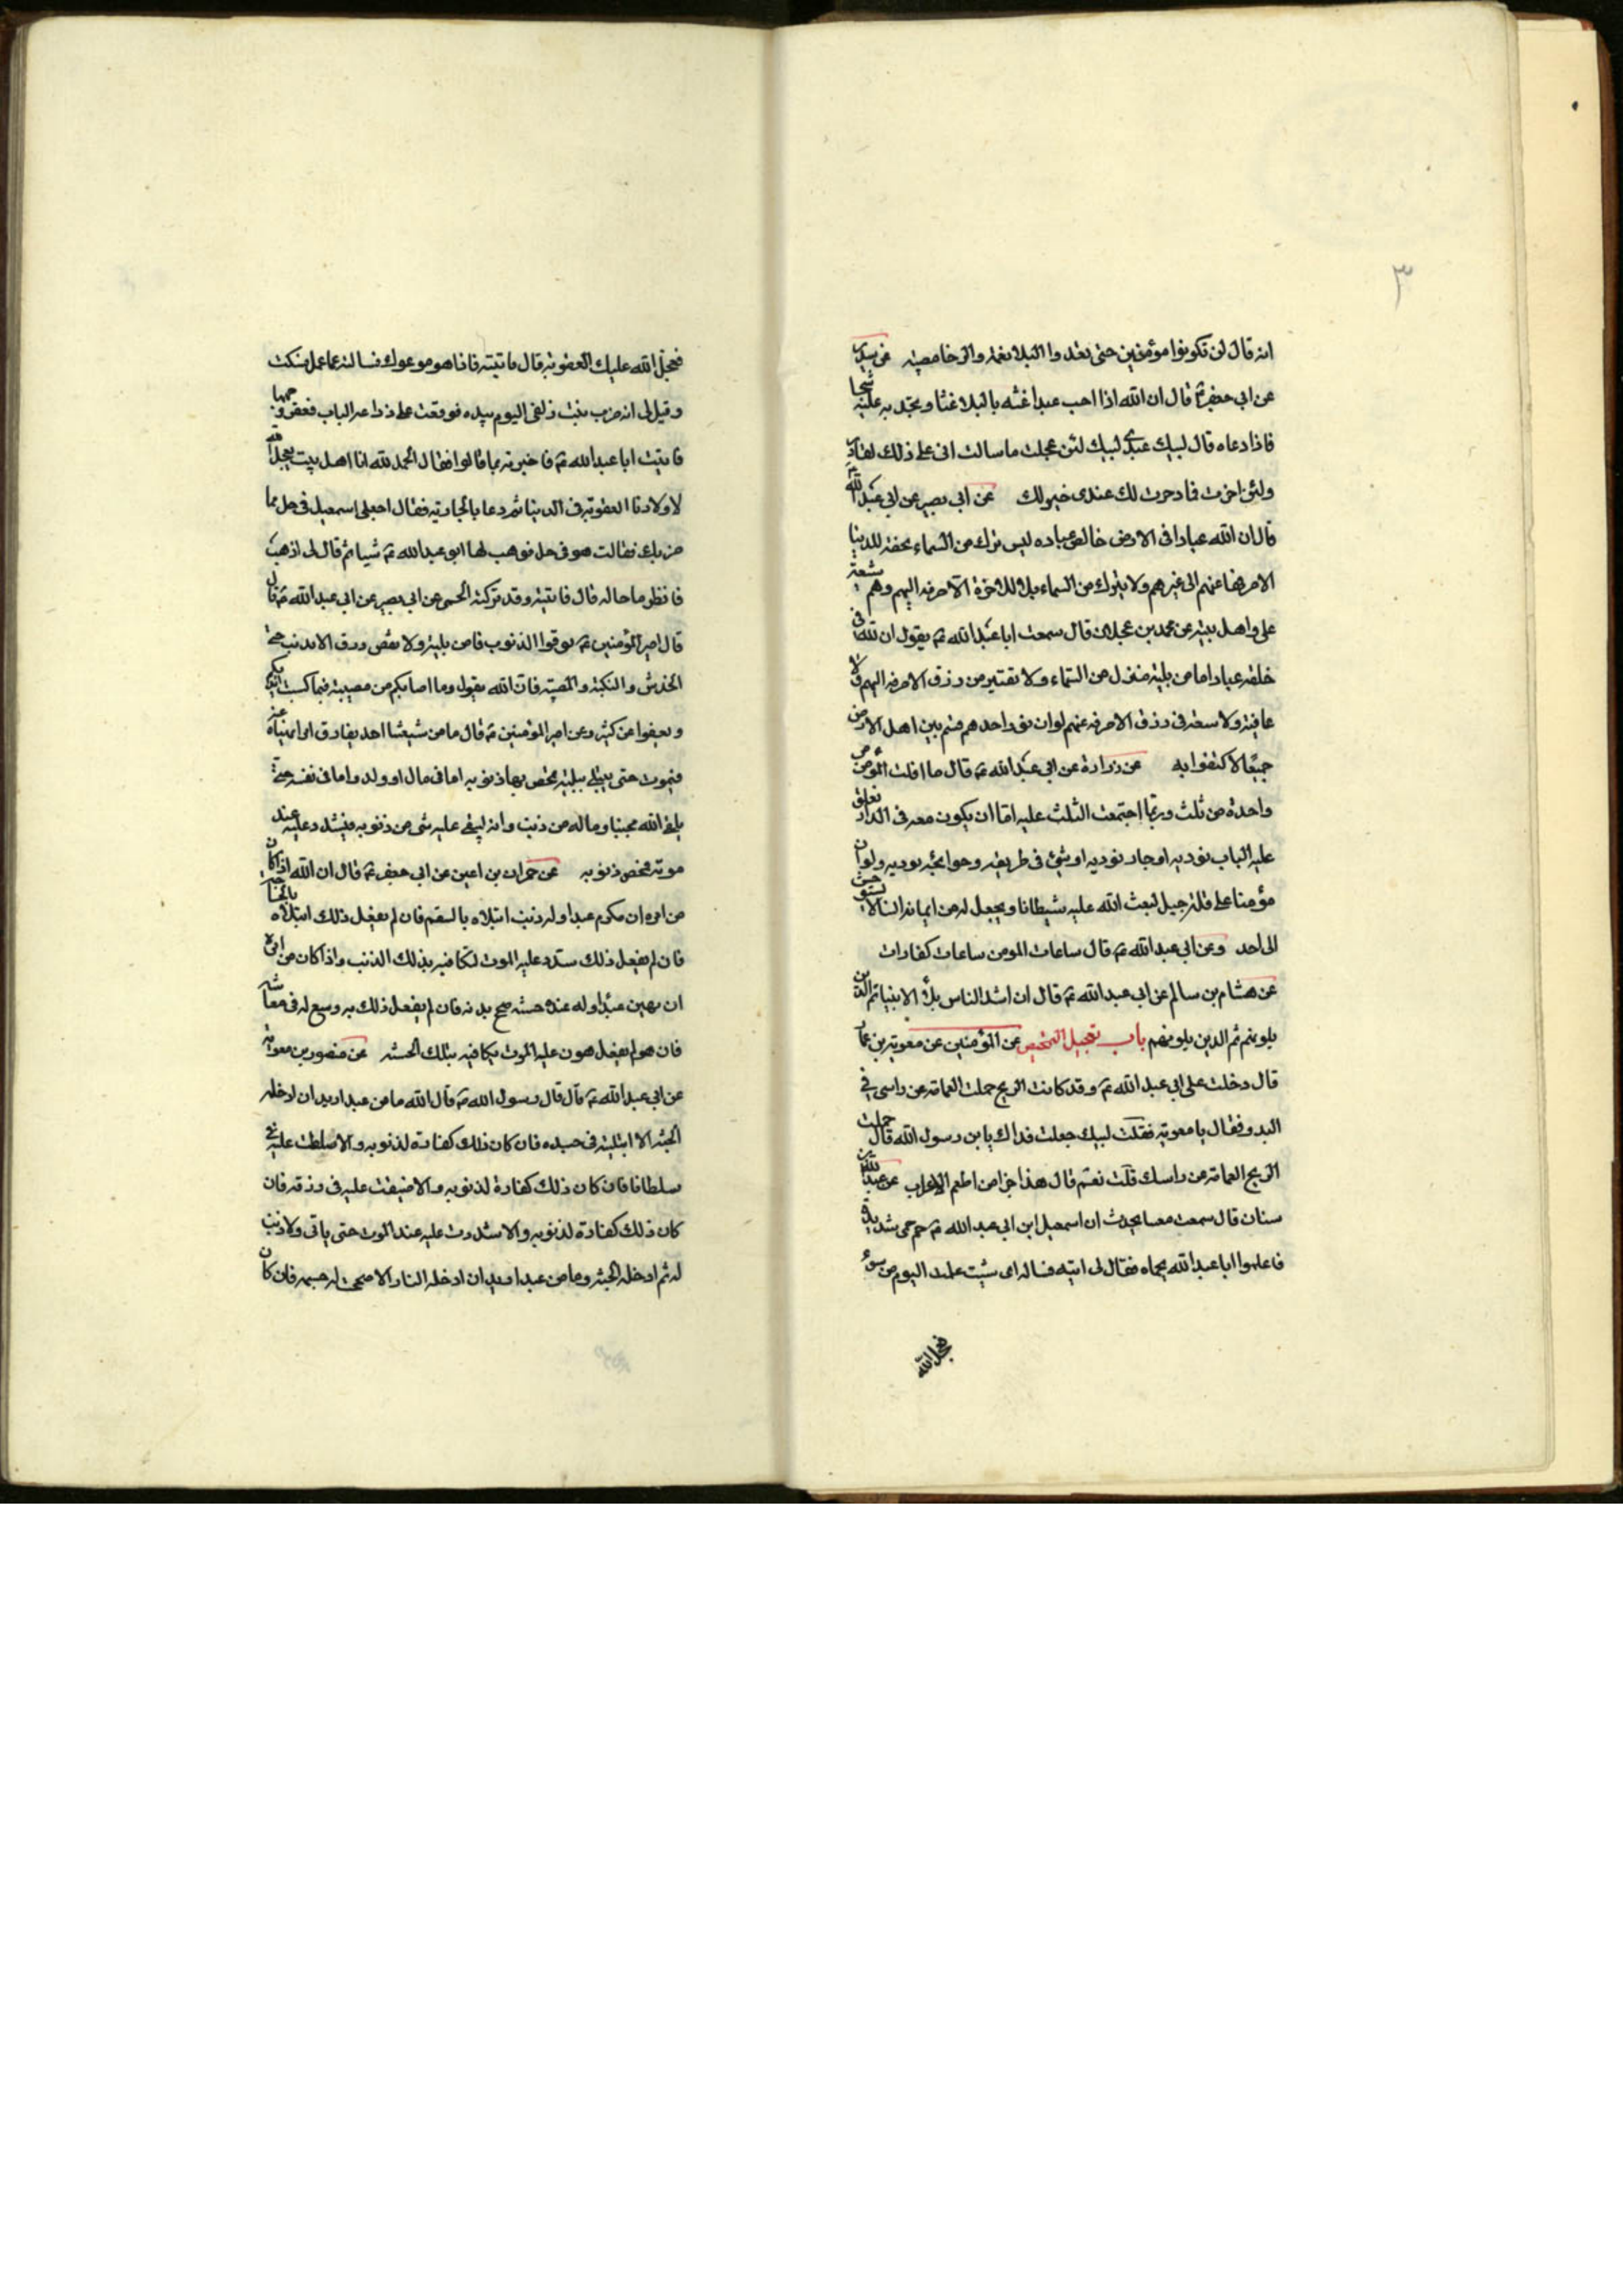 ٣
انه قال لن تكونوا مؤمنين حتى تعدوا البلا نعمة والرخا مصيبة عن سدير
عن ابى جعفر ع قال ان الله اذا احب عبدا غثه بالبلا غثا ويجثه به عليه ثجا
فاذا دعاه قال لبيك عبدى لبيك لئن عجلت ما سالت انى على ذلك لقادر
ولئن اخرت فادخرت لك عندى خير لك عن ابى بصير عن ابى عبد الله ع
قال ان الله عبادا فى الارض خالص عباده ليس ينزل من السماء تحفة للدنيا
الا صرفها عنهم الى غيرهم ولا ينزل من السماء بلا للاخرة الا صرفه اليهم وهم شيعة
على واهل بيته عن محمد بن عجلان قال سمعت ابا عبد الله ع يقول ان لله فى
خلقه عبادا ما من بلية تنزل من السماء ولا تقتير من رزق الا صرفه اليهم ولا
عافية ولا سعة فى رزق الا صرفه عنهم لو ان نور احدهم قسم بين اهل الارض
جميعا لاكتفوا به عن زرارة عن ابى عبد الله ع قال ما افلت المؤمن من
واحدة من ثلث وربما اجتمعت الثلث عليه اما ان يكون معه فى الدار من يغلق
عليه الباب يوذيه او جار يوذيه او شئ فى طريقه وحوائجه يوذيه ولو ان
مؤمنا على قلة جبل لبعث الله عليه شيطانا ويجعل له من ايمانه انسا لا يستوحش
الى احد وعن ابى عبد الله ع قال ساعات المومن ساعات كفارات
عن هشام بن سالم عن ابى عبد الله ع قال ان اشد الناس بلاء الانبيا ثم الذين
يلونهم ثم الذين يلونهم باب تعجيل التمحيص عن المؤمنين عن معوية بن عمار
قال دخلت على ابى عبد الله ع وقد كانت الريح حملت العمامة عن راسى فى
البدو فقال يا معوية فقلت لبيك جعلت فداك يا بن رسول الله قال حملت
الريح العمامة عن راسك قلت نعم قال هذا جزا من اطعم الاعراب عن عبد الله بن
سنان قال سمعت معتبا يحدث ان اسمعيل ابن ابى عبد الله ع حم حمى شديدة
فاعلموا ابا عبد الله بحماه فقال لى ايته فساله اى شيت عملت اليوم من سوء
فعجل الله
فعجل الله عليك العقوبة قال فاتيته فاذا هو موعوك فسالته عما عمل فسكت
وقيل لى انه ضرب بنت زلفى اليوم بيده فوقعت على دراعه الباب فعقر وجهها
فاتيت ابا عبد الله ع فاخبرته بما قالوا فقال الحمد لله انا اهل بيت يعجل الله
لاولادنا العقوبة فى الدنيا ثم دعا بالجارية فقال اجعلى اسمعيل فى حل مما
ضربك فقالت هو فى حل فوهب لها ابو عبد الله ع شيا ثم قال لى اذهب
فانظر ما حاله قال فاتيته وقد تركته الحمى عن ابى بصير عن ابى عبد الله ع قال
قال امير المؤمنين ع توقوا الذنوب فما من بلية ولا نقص رزق الا بذنب حتى
الخدش والنكبة والمصيبة فان الله يقول وما اصابكم من مصيبة فبما كسبت ايديكم
ويعفوا عن كثير وعن امير المؤمنين ع قال ما من شيعتنا احد يقارف امرا نهيناه عنه
فيموت حتى يبتلى ببلية تمحص بها ذنوبه اما فى مال او ولد واما فى نفسه حتى
يلقى الله محبنا وما له من ذنب وانه ليبقى عليه شى من ذنوبه فيشدد عليه عند
موته فتمحص ذنوبه عن حمران بن اعين عن ابى جعفر ع قال ان الله اذا كان
من امره ان يكرم عبدا وله ذنب ابتلاه بالسقم فان لم يفعل ذلك ابتلاه بالحاجة
فان لم يفعل ذلك شدد عليه الموت ليكافيه بذلك الذنب واذا كان من امره
ان يهين عبدا وله عنده حسنة صحح بدنه فان لم يفعل ذلك به وسع له فى معاشه
فان هو لم يفعل هون عليه الموت ليكافيه بتلك الحسنة عن منصور بن معوية
عن ابى عبد الله ع قال قال رسول الله ص قال الله ما من عبد اريد ان ادخله
الجنة الا ابتليته فى جسده فان كان ذلك كفارة لذنوبه والا سلطت عليه
سلطانا فان كان ذلك كفارة لذنوبه والا ضيقت عليه فى رزقه فان
كان ذلك كفارة لذنوبه والا شددت عليه عند الموت حتى ياتى ولا ذنب
له ثم ادخله الجنة وما من عبد اريد ان ادخله النار الا صححت له جسمه فان كان